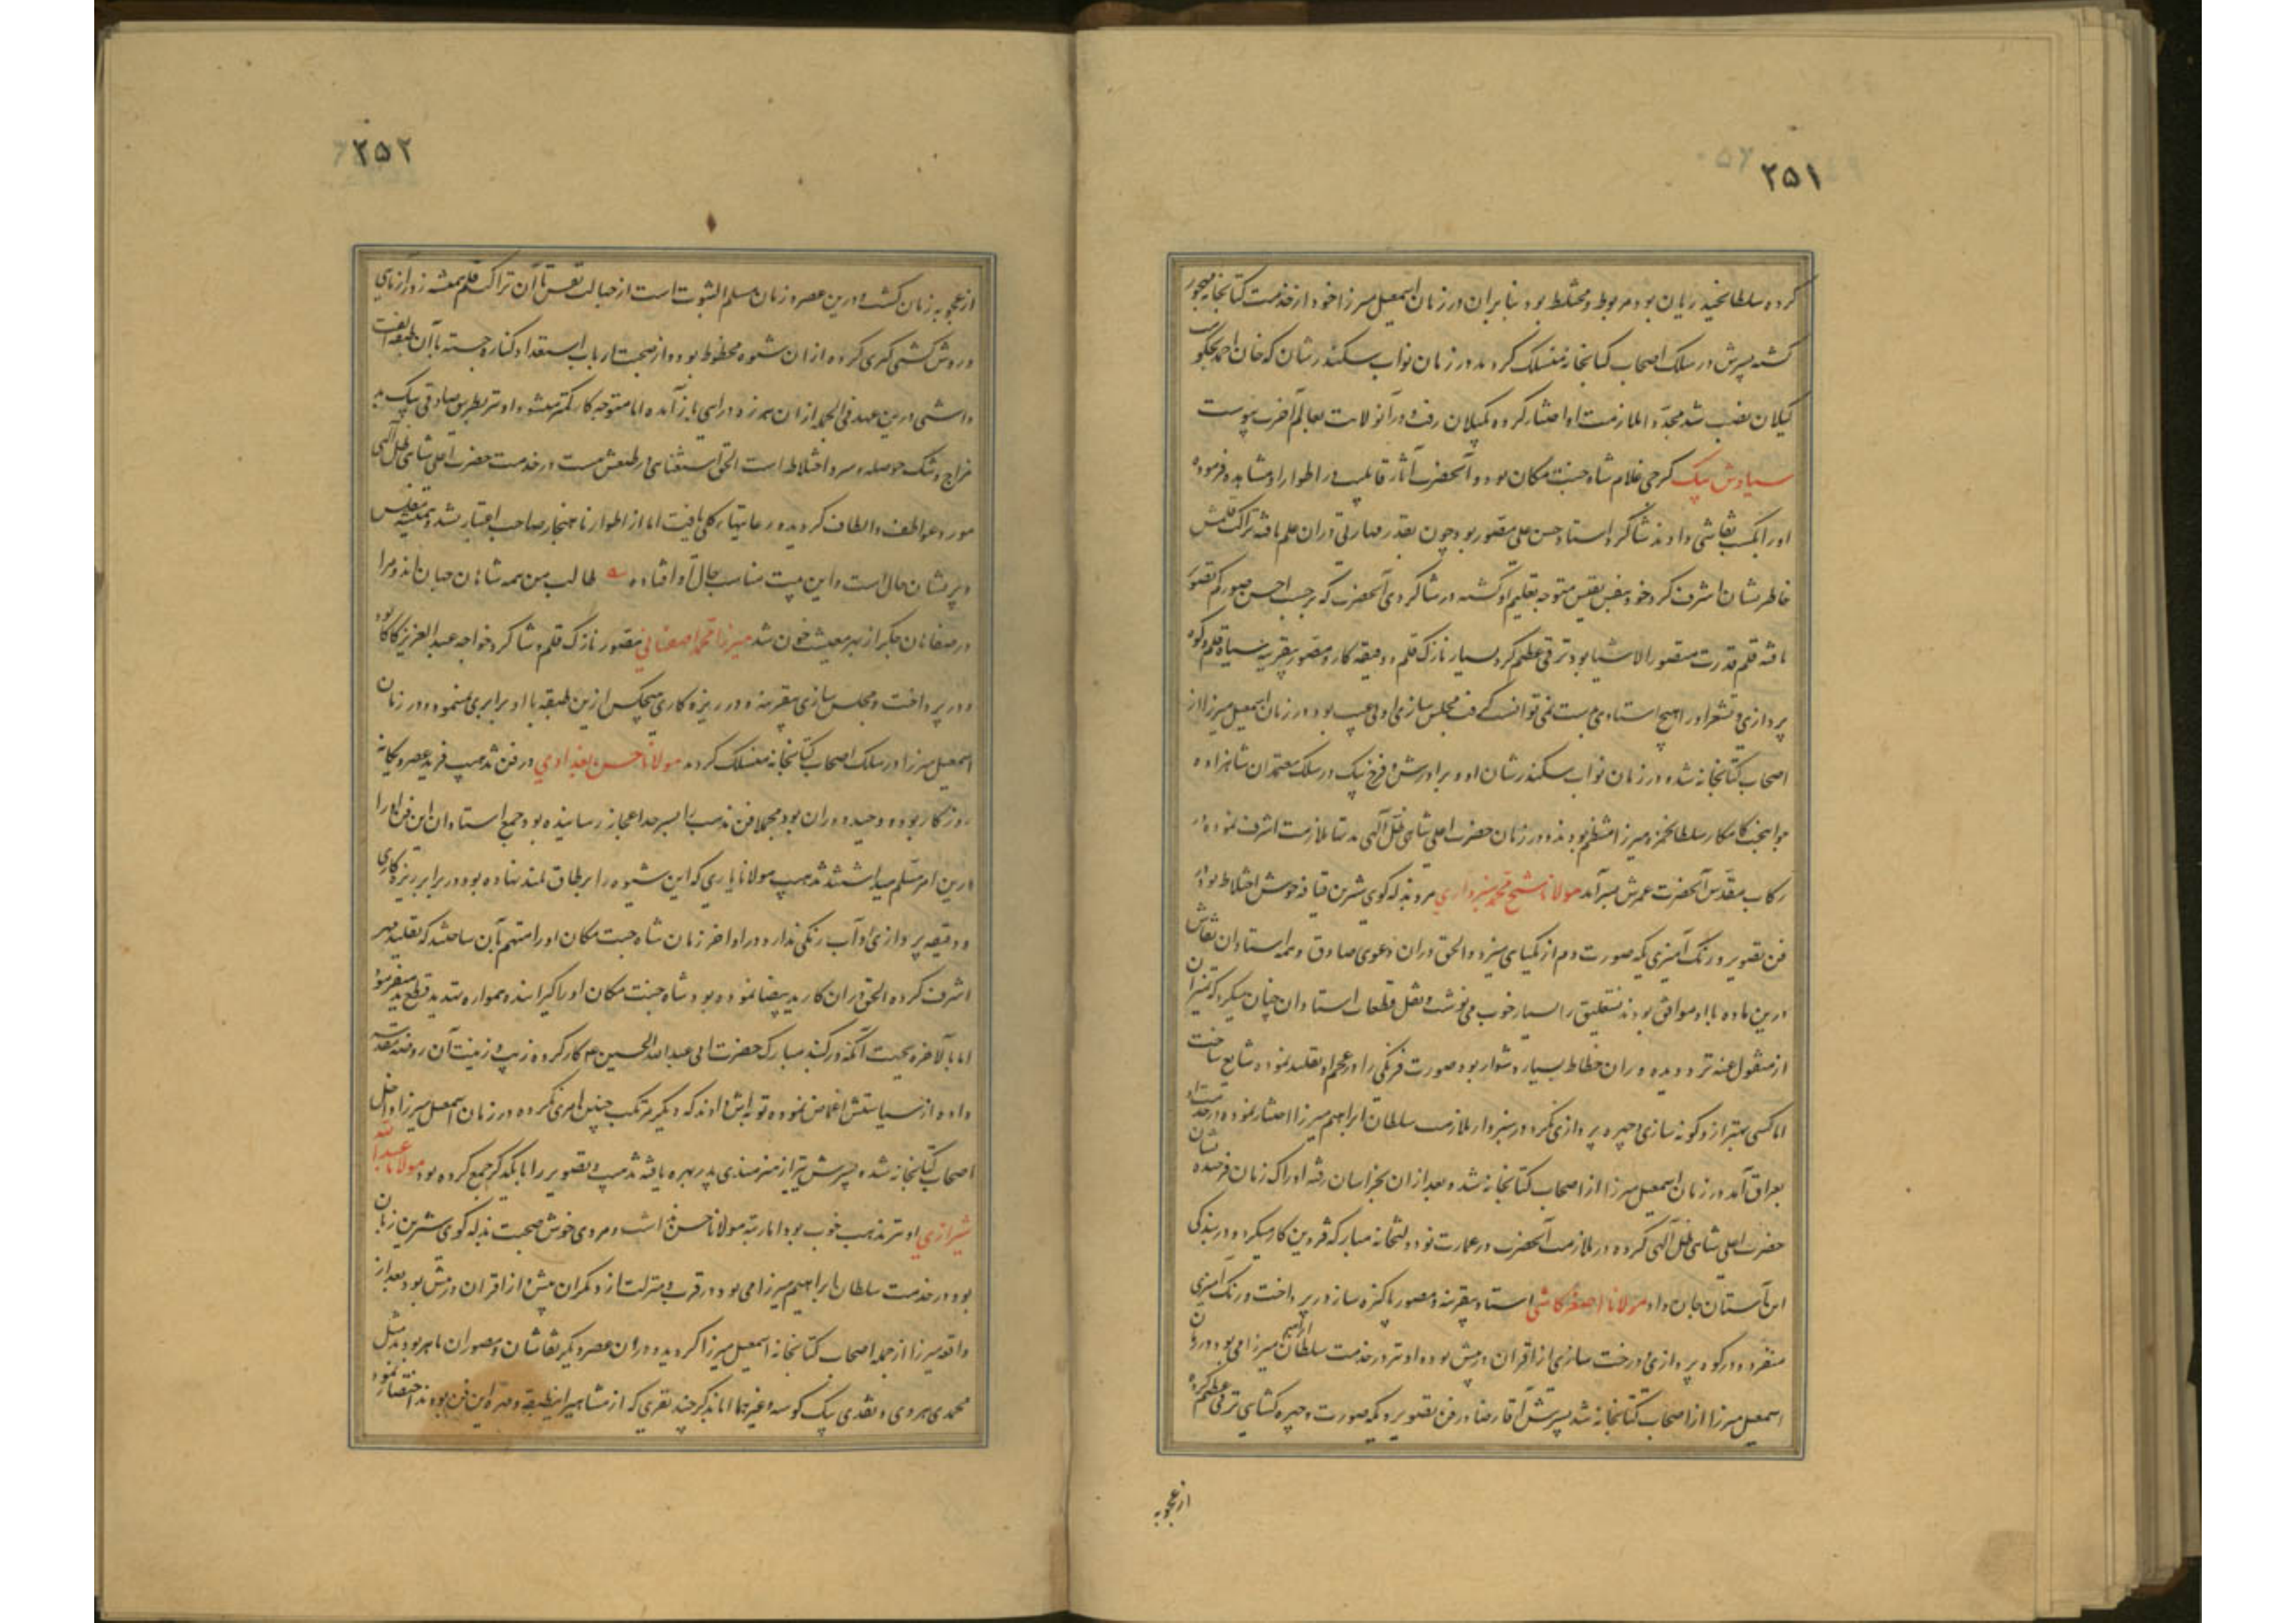 ۲۵۱
کرده سلطانحیدریان بود مربوط و مختلط بود بنابران در زمان اسمعیل میرزا خود از خدمت کتابخانه مهجور
گشته پسرش در سلک اصحاب کتابخانه منسلک گردید در زمان نواب سکندرشان که خان احمد بحکومت
گیلان نصب شد مجددا ملازمت او اختیار کرده بگیلان رفت و در آنولایت بعالم آخرت پیوست
سیاوش بیک گرجی غلام شاه جنت مکان بود و آنحضرت آثار قابلیت در اطوار او مشاهده فرموده
او را بکسب نقاشی دادند شاگرد استاد حسن علی مصور بود چون بقدر مهارتی در ان علم یافته نزاکت قلمش
خاطرنشان اشرف کرد خود بنفس نفیس متوجه تعلیم او گشته در شاگردی آنحضرت که بر حسب احسن صورکم تصویر
یافته قلم قدرت مصور الاشیا بود ترقی عظیم کرد بسیار نازک قلم و دقیقه کار و مصور بیقرینه سیاه قلم و کوه
پردازی و تشعر او را هیچ استادی بدست نمی توانست گرفت مجلس سازی او دلچسب بود در زمان اسمعیل میرزا از
اصحاب کتابخانه شده در زمان نواب سکندرشان او و برادرش فرخ بیک در سلک معتمدان شاهزاده
جوانبخت کامکار سلطانحمزه میرزا منتظم بودند و در زمان حضرت اعلی شاهی ظل آلهی مدتها ملازمت اشرف نموده در
رکاب مقدس آنحضرت عمرش بسر آمد مولانا شیخ محمد سبزواری مرد بذله گوی شیرین قیافه خوش اختلاط بود در
فن تصویر و رنگ آمیزی یکه صورت دم از یکتایی میزد و الحق در ان دعوی صادق و همه استادان نقاش
درین ماده با او موافق بودند نستعلیق را بسیار خوب می نوشت و نقل قطعات استادان چنان میکرد که تمیز آن
از منقول عنه تردیده وران خطاط بسیار دشوار بود صورت فرنگی را در عجم او تقلید نموده شایع ساخت
اما کسی بهتر از و گونه سازی و چهره پردازی نکرد در سبزوار ملازمت سلطان ابراهیم میرزا اختیار نموده در خدمت او
بعراق آمد در زمان اسمعیل میرزا از اصحاب کتابخانه شد و بعد از ان بخراسان رفته ادراک زمان فرخنده نشان
حضرت اعلی شاهی ظل آلهی کرده در ملازمت آنحضرت در عمارت نو دولتخانه مبارکه قزوین کار میکرد و در بندگی
این آستان جان داد مولانا اصغر کاشی استاد بیقرینه و مصور پاکیزه ساز در پرداخت و رنگ آمیزی
منفرد و در کوه پردازی و درخت سازی از اقران در پیش بود او نیز در خدمت سلطان ابراهیم میرزا می بود در زمان
اسمعیل میرزا از اصحاب کتابخانه شد پسرش آقا رضا در فن تصویر و یکه صورت و چهره گشایی ترقی عظیم کرده
از عجوبه
۲۵۲
از عجوبه زمان گشت و درین عصر و زمان مسلم الثبوت است از جهالت نفس با آن نزاکت قلم همیشه زورآزمایی
و روش کشتی گیری کرده از ان شیوه محظوظ بود و از صحبت ارباب استعداد کناره جسته با آن طبقه الفت
داشتی درین عهد فی الجمله از ان هرزه درایی باز آمده اما متوجه کار کمتر میشود او نیز بطریق صادقی بیک بد
مزاج و تنگ حوصله و سرد اختلاط است الحق استغنایی در طبعش هست در خدمت حضرت اعلی شاهی ظل آلهی
مورد عواطف و الطاف گردیده رعایتهاء کلی یافت اما از اطوار ناهنجار صاحب اعتبار نشد و همیشه مفلس
و پریشان حال است و این بیت مناسب حال او افتاده طالب من همه شاهان جهان اند و مرا
در صفاهان جگر از بهر معیشت خون شد میرزا محمد اصفهانی مصور نازک قلم و شاگرد خواجه عبدالعزیز کاکا بود
و در پرداخت و مجلس سازی بیقرینه و در ریزه کاری هیچکس ازین طبقه با او برابری ننمود و در زمان
اسمعیل میرزا در سلک اصحاب کتابخانه منسلک گردید مولانا حسن بغدادی در فن تذهیب فرید عصر و یگانه
روزگار بوده وحید دوران بود مجملا فن تذهیب را بسرحد اعجاز رسانیده بود جمیع استادان این فن او را
درین امر مسلم میداشتند تذهیب مولانا یاری که این شیوه را بر طاق بلند نهاده بود در برابر ریزه کاری
و دقیقه پردازی او آب و رنگی ندارد در اواخر زمان شاه جنت مکان او را متهم بآن ساختند که تقلید مهر
اشرف کرده الحق در ان کار ید بیضا نموده بود شاه جنت مکان او را گیرانیده همواره تهدید بقطع ید میفرمود
اما بالاخره بجهت آنکه در گنبد مبارک حضرت ابی عبدالله الحسین ع کار کرده زیب و زینت آن روضه مقدسه
داده از سیاستش اغماض نموده توبه اش دادند که دیگر مرتکب چنین امری نگردد در زمان اسمعیل میرزا داخل
اصحاب کتابخانه شده پسرش نیز از هنرمندی پدر بهره یافته تذهیب و تصویر را با یکدیگر جمع کرده بود مولانا عبدالله
شیرازی او نیز مذهب خوب بود اما رتبه مولانا حسن نداشت و مردی خوش صحبت بذله گوی شیرین زبان
بود در خدمت سلطان ابراهیم میرزا می بود در قرب و منزلت از دیگران پیش و از اقران در پیش بود بعد از
واقعه میرزا از جمله اصحاب کتابخانه اسمعیل میرزا گردید و در ان عصر دیگر نقاشان و مصوران ماهر بودند مثل
محمدی هروی و نقدی بیک کوسه و غیرهما اما بذکر چند نفری که از مشاهیر اینطبقه و مهره این فن بودند اختصار نمود